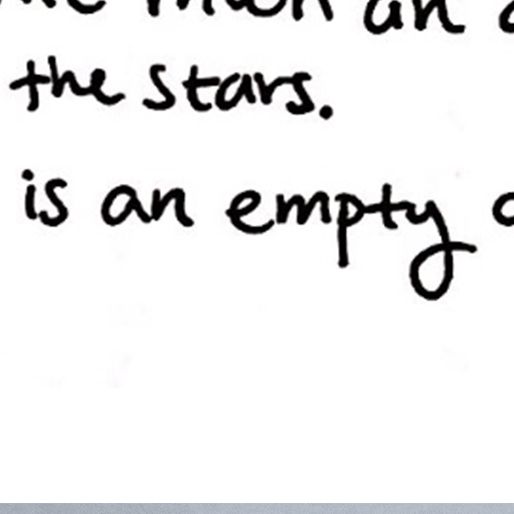 an
the stars.
is an empty